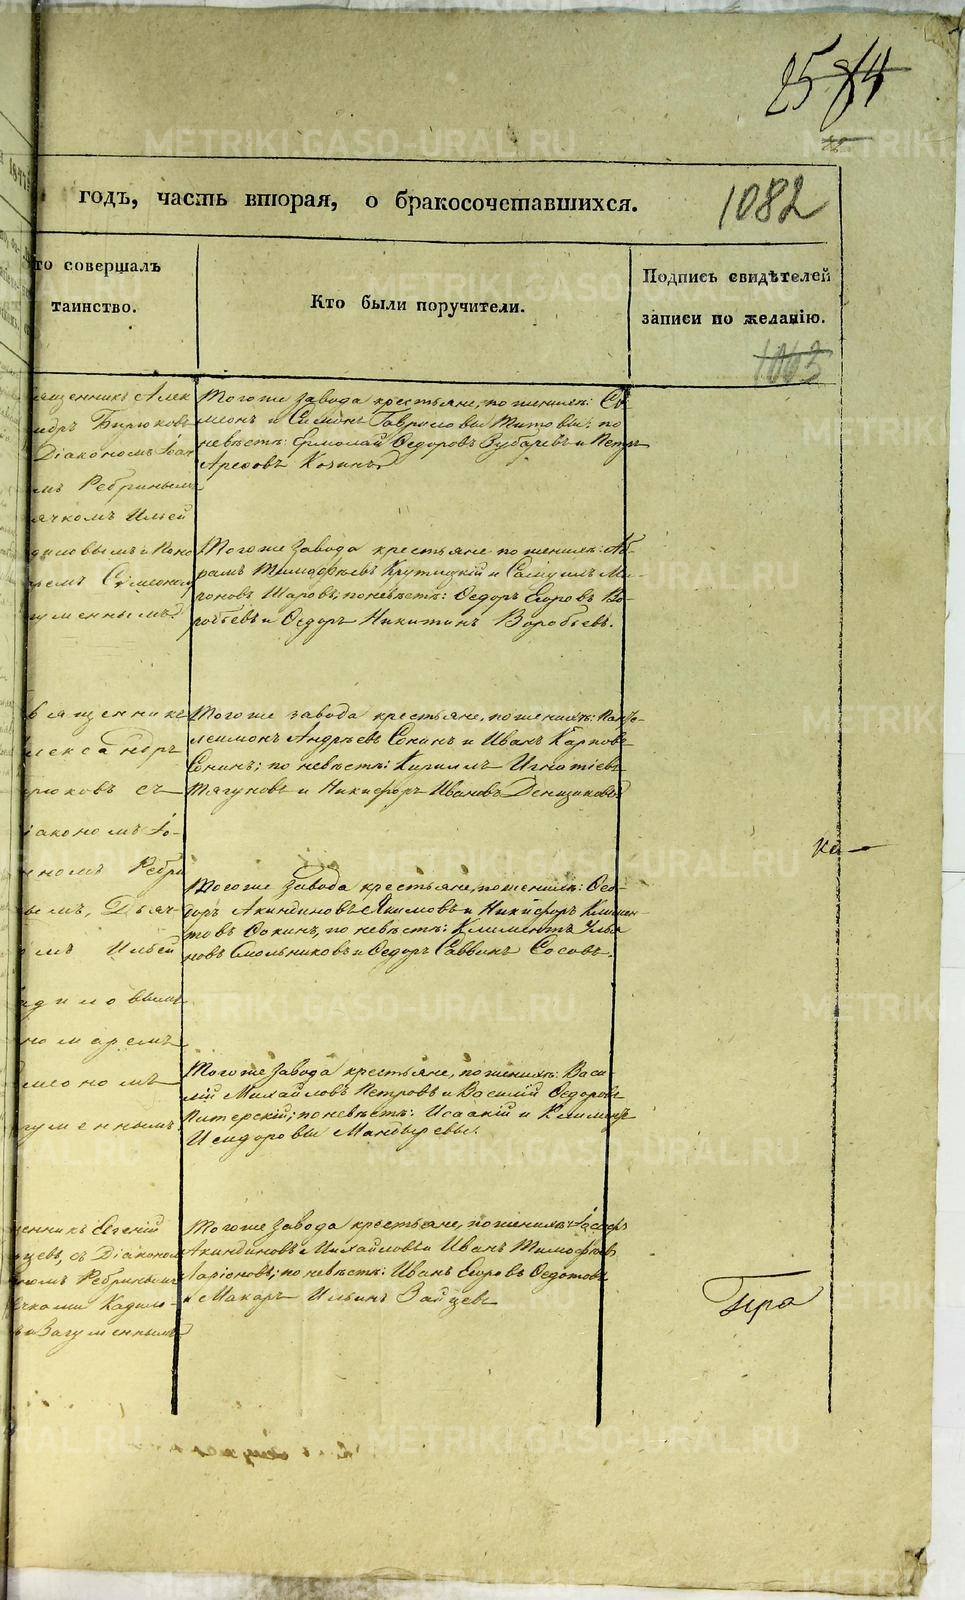 1082
годъ, часть вторая, о бракосочетавшихся.
то совершалъ
таинство.
Кто были поручители.
Подпись свидѣтелей
записи по желанію.
1063
ященникъ Алек
ндръ Бирюковъ
Діакономъ Іоан
мъ Ребринымъ
ячкомъ Ильей
диловымъ и Поно
ремъ Симеоном
гуменнымъ.
Тогоже завода крестьяне, по женихѣ: Си-
меонъ и Симонъ Гавриловы Титовы; по
невѣстѣ: Ермолай Ѳедоровъ Зубаревъ и Петръ
Арефовъ Кочинъ
Тогоже завода крестьяне по женихѣ: Аб-
рамъ Тимофѣевъ Крутицкій и Самуилъ Ми-
роновъ Шаровъ; по невѣстѣ: Ѳедоръ Егоровъ Во-
робьевъ и Ѳедоръ Никитинъ Воробьевъ.
вященникъ
лександръ
рюковъ съ
іакономъ Іо-
нномъ Ребри
ымъ, Дьяч-
мъ Ильей
адиловымъ
номаремъ
имеономъ
гуменнымъ
Тогоже завода крестьяне, по женихѣ: Пан-
елеимонъ Андрѣевъ Сонинъ и Иванъ Карповъ
Сонинъ; по невѣстѣ: Кириллъ Игнатіевъ
Тягуновъ и Никифоръ Ивановъ Денщиковъ
Тогоже завода крестьяне, по женихѣ: Ѳео-
доръ Акиндиновъ Якимовъ и Никифоръ Климен-
товъ Ѳокинъ; по невѣстѣ: Климентъ Улья
новъ Смольниковъ и Ѳедоръ Саввинъ Сосовъ.
Тогоже завода крестьяне, по женихѣ: Васи-
лій Михайловъ Петровъ и Василій Ѳедоровъ
Питерскій; по невѣстѣ: Исаакій и Климентъ
Исидоровы Мандыревы.
щенникъ Евгеній
цевъ, съ Діаконом
номъ Ребринымъ
чками Кадило-
и Загуменнымъ
Тогоже завода крестьяне, по женихѣ: Іосифъ
Акиндиновъ Михайловъ и Иванъ Тимофѣевъ
Ларіоновъ; по невѣстѣ: Иванъ Егоровъ Ѳедотовъ
и Макаръ Ильинъ Зайцевъ
METRIKI.GASO-URAL.RU